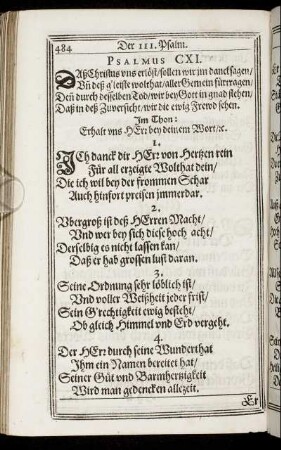 484 Der 111. Psalm.
PSALMUS CXI.
DAßChristus vns erlößt/sollen wir im danck sagen/
Vñ deß g'leißt wolthat/aller Gemein fürtragen:
Deñ durch desselben Tod/wir bey Gott in gnad stehen/
Daß in deß Zuversicht/wir die ewig Frewd sehen.
Im Thon:
Erhalt vns HErr bey deinem Wort/ꝛc.
1.
JCh danck dir HErr von Hertzen rein
Für all erzeigte Wolthat dein/
Die ich wil bey der frommen Schar
Auch hinfort preisen jmmerdar.
2.
Vbergroß ist deß HErren Macht/
Vnd wer bey sich diese hoch acht/
Derselbig es nicht lassen kan/
Daß er hab grossen lust daran.
3.
Seine Ordnung sehr löblich ist/
Vnd voller Weißheit jeder frist/
Sein G'rechtigkeit ewig besteht/
Ob gleich Himmel vnd Erd vergeht.
4.
Der HErr durch seine Wunderthat
Jhm ein Namen bereitet hat/
Seiner Güt vnd Barmhertzigkeit
Wird man gedencken allezeit.
Er